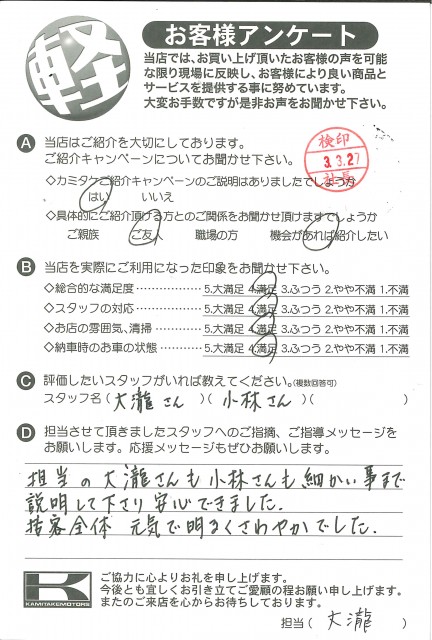 軽
お客様アンケート
当店では、お買い上げ頂いたお客様の声を可能
な限り現場に反映し、お客様により良い商品と
サービスを提供する事に努めています。
大変お手数ですが是非お声をお聞かせ下さい。
A 当店はご紹介を大切にしております。
ご紹介キャンペーンについてお聞かせ下さい。
検印
3.3.27
社長
◇カミタケご紹介キャンペーンのご説明はありましたでしょうか
はい いいえ
◇具体的にご紹介頂ける方とのご関係をお聞かせ頂けますでしょうか
ご親族 ご友人 職場の方 機会があれば紹介したい
B 当店を実際にご利用になった印象をお聞かせ下さい。
◇総合的な満足度 ················ 5.大満足 4.満足 3.ふつう 2.やや不満 1.不満
◇スタッフの対応 ················ 5.大満足 4.満足 3.ふつう 2.やや不満 1.不満
◇お店の雰囲気、清掃 ·········· 5.大満足 4.満足 3.ふつう 2.やや不満 1.不満
◇納車時のお車の状態 ·········· 5.大満足 4.満足 3.ふつう 2.やや不満 1.不満
C 評価したいスタッフがいれば教えてください。(複数回答可)
スタッフ名 ( 大瀧さん )( 小林さん )( )
D 担当させて頂きましたスタッフへのご指摘、ご指導メッセージを
お願いします。応援メッセージもぜひお願いします。
担当の大瀧さんも小林さんも細かい事まで
説明して下さり安心できました。
接客全体 元気で明るくさわやかでした.
K
KAMITAKEMOTORS
ご協力に心よりお礼を申し上げます。
今後とも宜しくお引き立てご愛顧の程お願い申し上げます。
またのご来店を心からお待ちしております。
担当 ( 大瀧 )